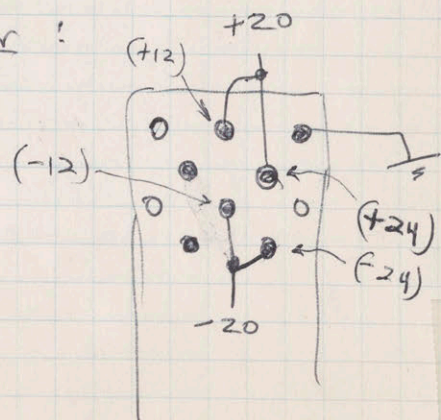 +20
(+12)
(-12)
(+24)
(-24)
-20